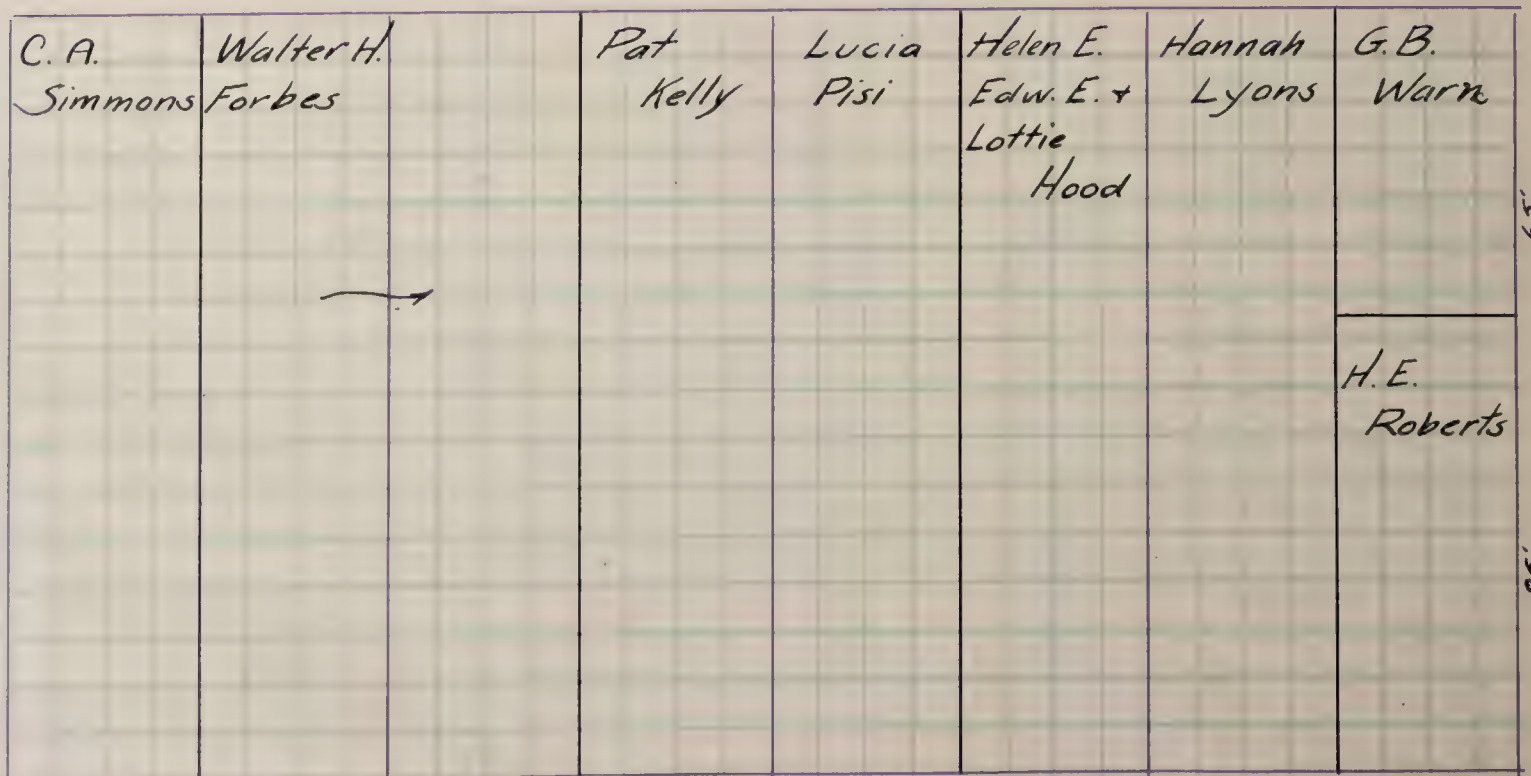 C. A.
Simmons
Walter H.
Forbes
Pat
Kelly
Lucia
Pisi
Helen E.
Edw. E. +
Lottie
Hood
Hannah
Lyons
G. B.
Warn
65'
H. E.
Roberts